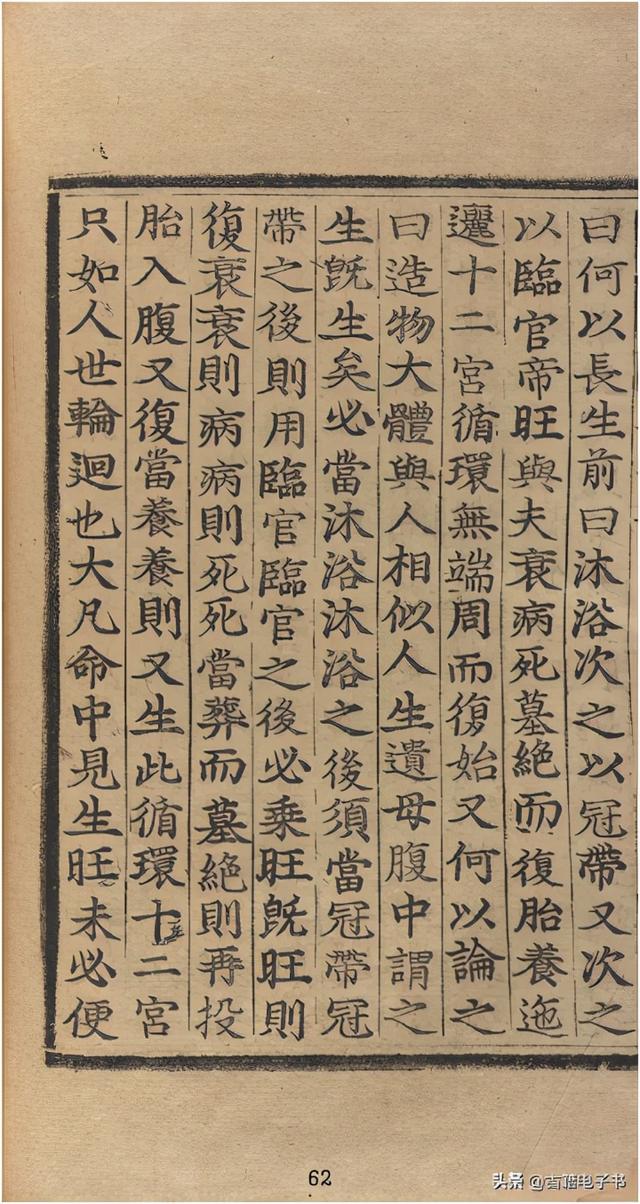 曰何以長生前曰沐浴次之以冠帶又次之
以臨官帝旺與夫衰病死墓絶而復胎養迤
邐十二宮循環無端周而復始又何以論之
曰造物大體與人相似人生遺母腹中謂之
生旣生矣必當沐浴沐浴之後須當冠帶冠
帶之後則用臨官臨官之後必乘旺旣旺則
復衰衰則病病則死死當葬而墓絶則再投
胎入腹又復當養養則又生此循環十二宮
只如人世輪迴也大凡命中見生旺未必便
62
头条 @古籍电子书